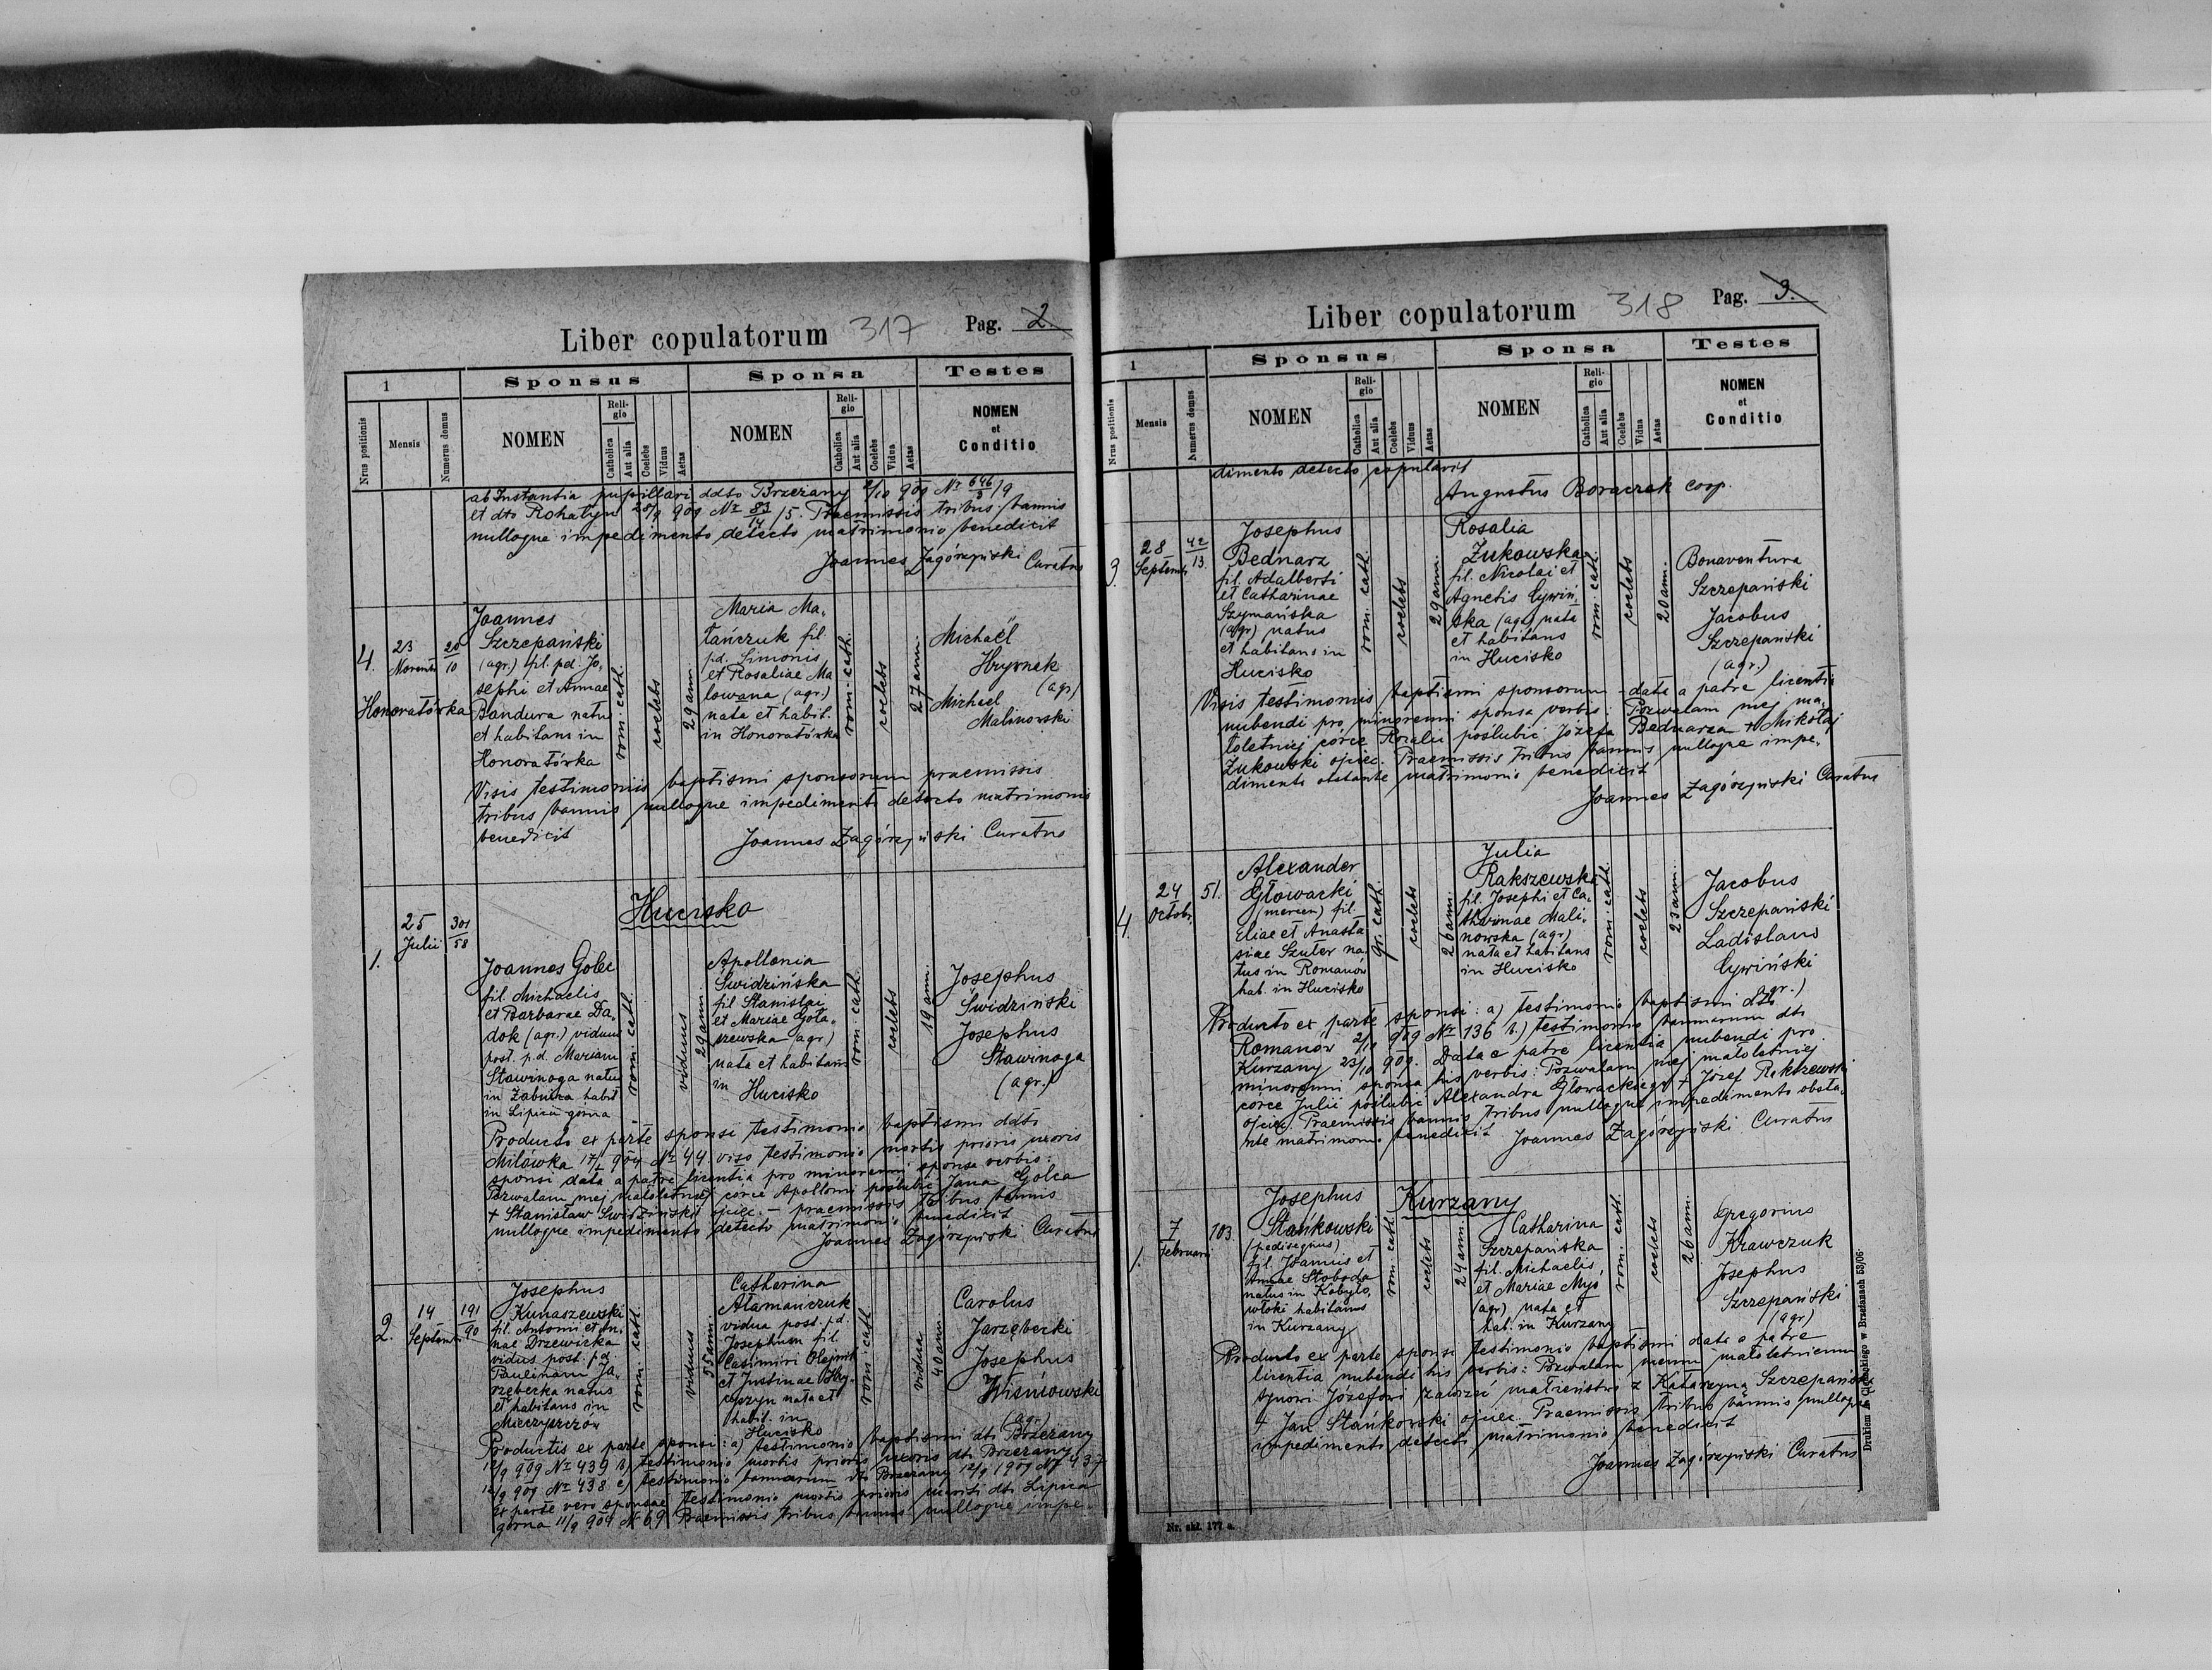 Liber copulatorum 317 Pag. 2
1 Sponsus Sponsa Testes
Nrus positionis Mensis Numerus domus NOMEN Religio Catholica Aut alia Coelebs Viduus Aetas NOMEN Religio Catholica Aut alia Coelebs Vidua Aetas NOMEN et Conditio
ab Instantia pupillari ddto Brzeżany 2/10 909 No 646/3 /9
et dto Rohatyn 28/9 909 No 83/14 /5. Praemissis tribus bannis
nulloque impedimento detecto matrimonio benedicit
Joannes Zagórzyński Curatus
4.
23
Novemb
20/10
Honoratówka
Joannes
Szczepański
(agr.) fil. pd. Jo,
sephi et Annae
Bandura natus
et habitans in
Honoratówka
rom. cath.
coelebs
29 ann.
Maria Ma,
tańczuk fil.
pd. Simonis
et Rosaliae Ma
lowana (agr.)
nata et habit.
in Honoratówka
rom. cath.
coelebs
27 ann.
Michaël
Hrysnek
(agr)
Michael
Malinowski
Visis testimoniis baptismi sponsorum praemissis
tribus bannis nulloque impedimento detecto matrimonio
benedicit
Joannes Zagórzyński Curatus
Hucisko
1.
25
Julii
301/58
Joannes Golec
fil. Michaelis
et Barbarae Da,
dok (agr.) viduus
post. p.d. Mariam
Stawinoga natus
in Żabnica habit
in Lipica górna
rom. cath.
viduus
29 ann
Apollonia
Świdzińska
fil Stanislai
et Mariae Gola,
szewska (agr)
nata et habitans
in
Hucisko
rom. cath.
coelebs
19 ann.
Josephus
Świdziński
Josephus
Stawinoga
(agr.)
Producto ex parte sponsi testimonio baptismi ddto
Milówka 17/1 904 No 44 viso testimonio mortis prioris uxoris
sponsi data a patre licentia pro minorenni sponsa verbis:
Pozwalam mej małoletniej córce Apolonii poślubić Jana Golca
+ Stanisław Świdziński ojciec. – praemissis tribus bannis
nulloque impedimento detecto matrimonio benedicit
Joannes Zagórzyński Curatus
2.
14
Septemb
191/90
Josephus
Kunaszewski
fil. Antonii et An,
nae Drzewicka
vidus post. p.d.
Paulinam Ja,
rzębecka natus
et habitans in
Mieczyszczów
rom. cath.
viduus
55 ann.
Catharina
Atamańczuk
vidua post. pd.
Josephum fil.
Casimiri Olejnik
et Justinae
nata et
habit. in
Hucisko
rom. cath
vidua
40 ann.
Carolus
Jarzębecki
Josephus
Wiśniowski
(agr.)
Productis ex parte sponsi: a) testimonio baptismi dto Brzeżany
12/9 909 No 439 b) testimonio mortis prioris uxoris dto Brzeżany
12/9 909 No 438 c) testimonio bannorum dto Brzeżany 12/9 1909 No 437
Ex parte vero sponsae testimonio mortis prioris mariti dto Lipica
górna 11/9 909 No 69 Praemissis tribus bannis nulloque impe-
Liber copulatorum 318 Pag. 3.
1 Sponsus Sponsa Testes
Nrus positionis Mensis Numerus domus NOMEN Religio Catholica Aut alia Coelebs Viduus Aetas NOMEN Religio Catholica Aut alia Coelebs Vidua Aetas NOMEN et Conditio
dimento detecto copulavit
Augustus Boraczek coop.
3.
28
Septemb
42/13.
Josephus
Bednarz
fil. Adalberti
et Catharinae
Szymańska
(agr) natus
et habitans in
Hucisko
rom. cath.
coelebs
29 ann.
Rosalia
Żukowska
fil. Nicolai et
Agnetis Cywiń,
ska (agr) nata
et habitans
in Hucisko
rom. cath.
coelebs
20 ann.
Bonaventura
Szczepański
Jacobus
Szczepański
(agr.)
Visis testimoniis baptismi sponsorum – data a patre licentia
nubendi pro minorenni sponsa verbis: Pozwalam mej ma,
łoletniej córce Rozalii poślubić Józefa Bednarza + Mikołaj
Żukowski ojciec. Praemissis tribus bannis nulloque impe,
dimento obstante matrimonio benedicit
Joannes Zagórzyński Curatus
4.
24
Octobr.
51.
Alexander
Głowacki
(mercen) fil.
Eliae et Anasta
siae Szuter na,
tus in Romanów
hab. in Hucisko
gr. cath.
coelebs
26 ann.
Julia
Rakszewska
fil. Josephi et Ca,
tharinae Mali,
nowska (agr)
nata et habitans
in Hucisko
rom. cath.
coelebs
23 ann.
Jacobus
Szczepański
Ladislaus
Cywiński
(agr.)
Producto ex parte sponsi: a) testimonio baptismi dto
Romanów 909 No 136 b) testimonio bannorum dto
Kurzany 23/10 909. Data a patre licentia nubendi pro
minorenni sponsa his verbis: Pozwalam mej małoletniej
córce Julii poślubić Alexandra Głowackiego + Józef Rakszewski
ojciec. Praemissis bannis tribus nulloque impedimento obsta,
nte matrimonio benedicit Joannes Zagórzyński Curatus
Kurzany
1.
7
Februarii
103.
Josephus
Stańkowski
(pedisequus)
fil. Joannis et
Annae Słoboda
natus in Kobyło,
włoki habitans
in Kurzany
rom. cath.
coelebs
24 ann.
Catharina
Szczepańska
fil. Michaelis,
et Mariae Myś
(agr) nata et
hab. in Kurzany
rom. cath.
coelebs
26 ann.
Gregorius
Krawczuk
Josephus
Szczepański
(agr)
Producto ex parte sponsi testimonio baptismi data a patre
licentia nubendi his verbis: Pozwalam memu małoletniemu
synowi Józefowi zawrzeć małżeństwo z Katarzyną Szczepańską
+ Jan Stańkowski ojciec. Praemissis tribus bannis nulloque
impedimento detecto matrimonio benedicit
Joannes Zagórzyński Curatus
Nr. skł. 177 a.
Drukiem w Brzeżanach 53/06.